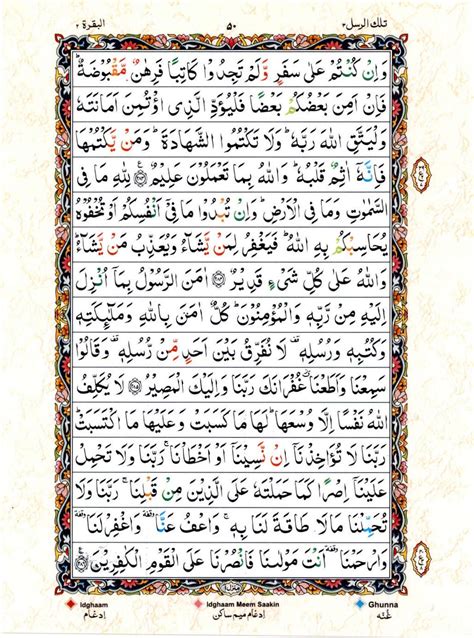 تلك الرسل ۳ ۵۰ البقرة ۲
وَاِنْ كُنْتُمْ عَلٰى سَفَرٍ وَّلَمْ تَجِدُوْا كَاتِبًا فَرِهٰنٌ مَّقْبُوْضَةٌ ؕ
فَاِنْ اَمِنَ بَعْضُكُمْ بَعْضًا فَلْيُؤَدِّ الَّذِى اؤْتُمِنَ اَمَانَتَهٗ
وَلْيَتَّقِ اللّٰهَ رَبَّهٗ ؕ وَلَا تَكْتُمُوا الشَّهَادَةَ ؕ وَمَنْ يَّكْتُمْهَا
فَاِنَّهٗۤ اٰثِمٌ قَلْبُهٗ ؕ وَاللّٰهُ بِمَا تَعْمَلُوْنَ عَلِيْمٌ ۝ لِلّٰهِ مَا فِى
السَّمٰوٰتِ وَمَا فِى الْاَرْضِ ؕ وَاِنْ تُبْدُوْا مَا فِىْۤ اَنْفُسِكُمْ اَوْ تُخْفُوْهُ
يُحَاسِبْكُمْ بِهِ اللّٰهُ ؕ فَيَغْفِرُ لِمَنْ يَّشَآءُ وَيُعَذِّبُ مَنْ يَّشَآءُ ؕ
وَاللّٰهُ عَلٰى كُلِّ شَىْءٍ قَدِيْرٌ ۝ اٰمَنَ الرَّسُوْلُ بِمَاۤ اُنْزِلَ
اِلَيْهِ مِنْ رَّبِّهٖ وَالْمُؤْمِنُوْنَ ؕ كُلٌّ اٰمَنَ بِاللّٰهِ وَمَلٰٓئِكَتِهٖ
وَكُتُبِهٖ وَرُسُلِهٖ ۟ لَا نُفَرِّقُ بَيْنَ اَحَدٍ مِّنْ رُّسُلِهٖ ۟ وَقَالُوْا
سَمِعْنَا وَاَطَعْنَا ٭۫ غُفْرَانَكَ رَبَّنَا وَاِلَيْكَ الْمَصِيْرُ ۝ لَا يُكَلِّفُ
اللّٰهُ نَفْسًا اِلَّا وُسْعَهَا ؕ لَهَا مَا كَسَبَتْ وَعَلَيْهَا مَا اكْتَسَبَتْ ؕ
رَبَّنَا لَا تُؤَاخِذْنَاۤ اِنْ نَّسِيْنَاۤ اَوْ اَخْطَاْنَا ۚ رَبَّنَا وَلَا تَحْمِلْ
عَلَيْنَاۤ اِصْرًا كَمَا حَمَلْتَهٗ عَلَى الَّذِيْنَ مِنْ قَبْلِنَا ۚ رَبَّنَا وَلَا
تُحَمِّلْنَا مَا لَا طَاقَةَ لَنَا بِهٖ ۚ وَاعْفُ عَنَّا ٝ وَاغْفِرْ لَنَا ٝ
وَارْحَمْنَا ٝ اَنْتَ مَوْلٰىنَا فَانْصُرْنَا عَلَى الْقَوْمِ الْكٰفِرِيْنَ ۝
Idghaam Idghaam Meem Saakin Ghunna
ادغام ادغام میم ساکن غنّہ